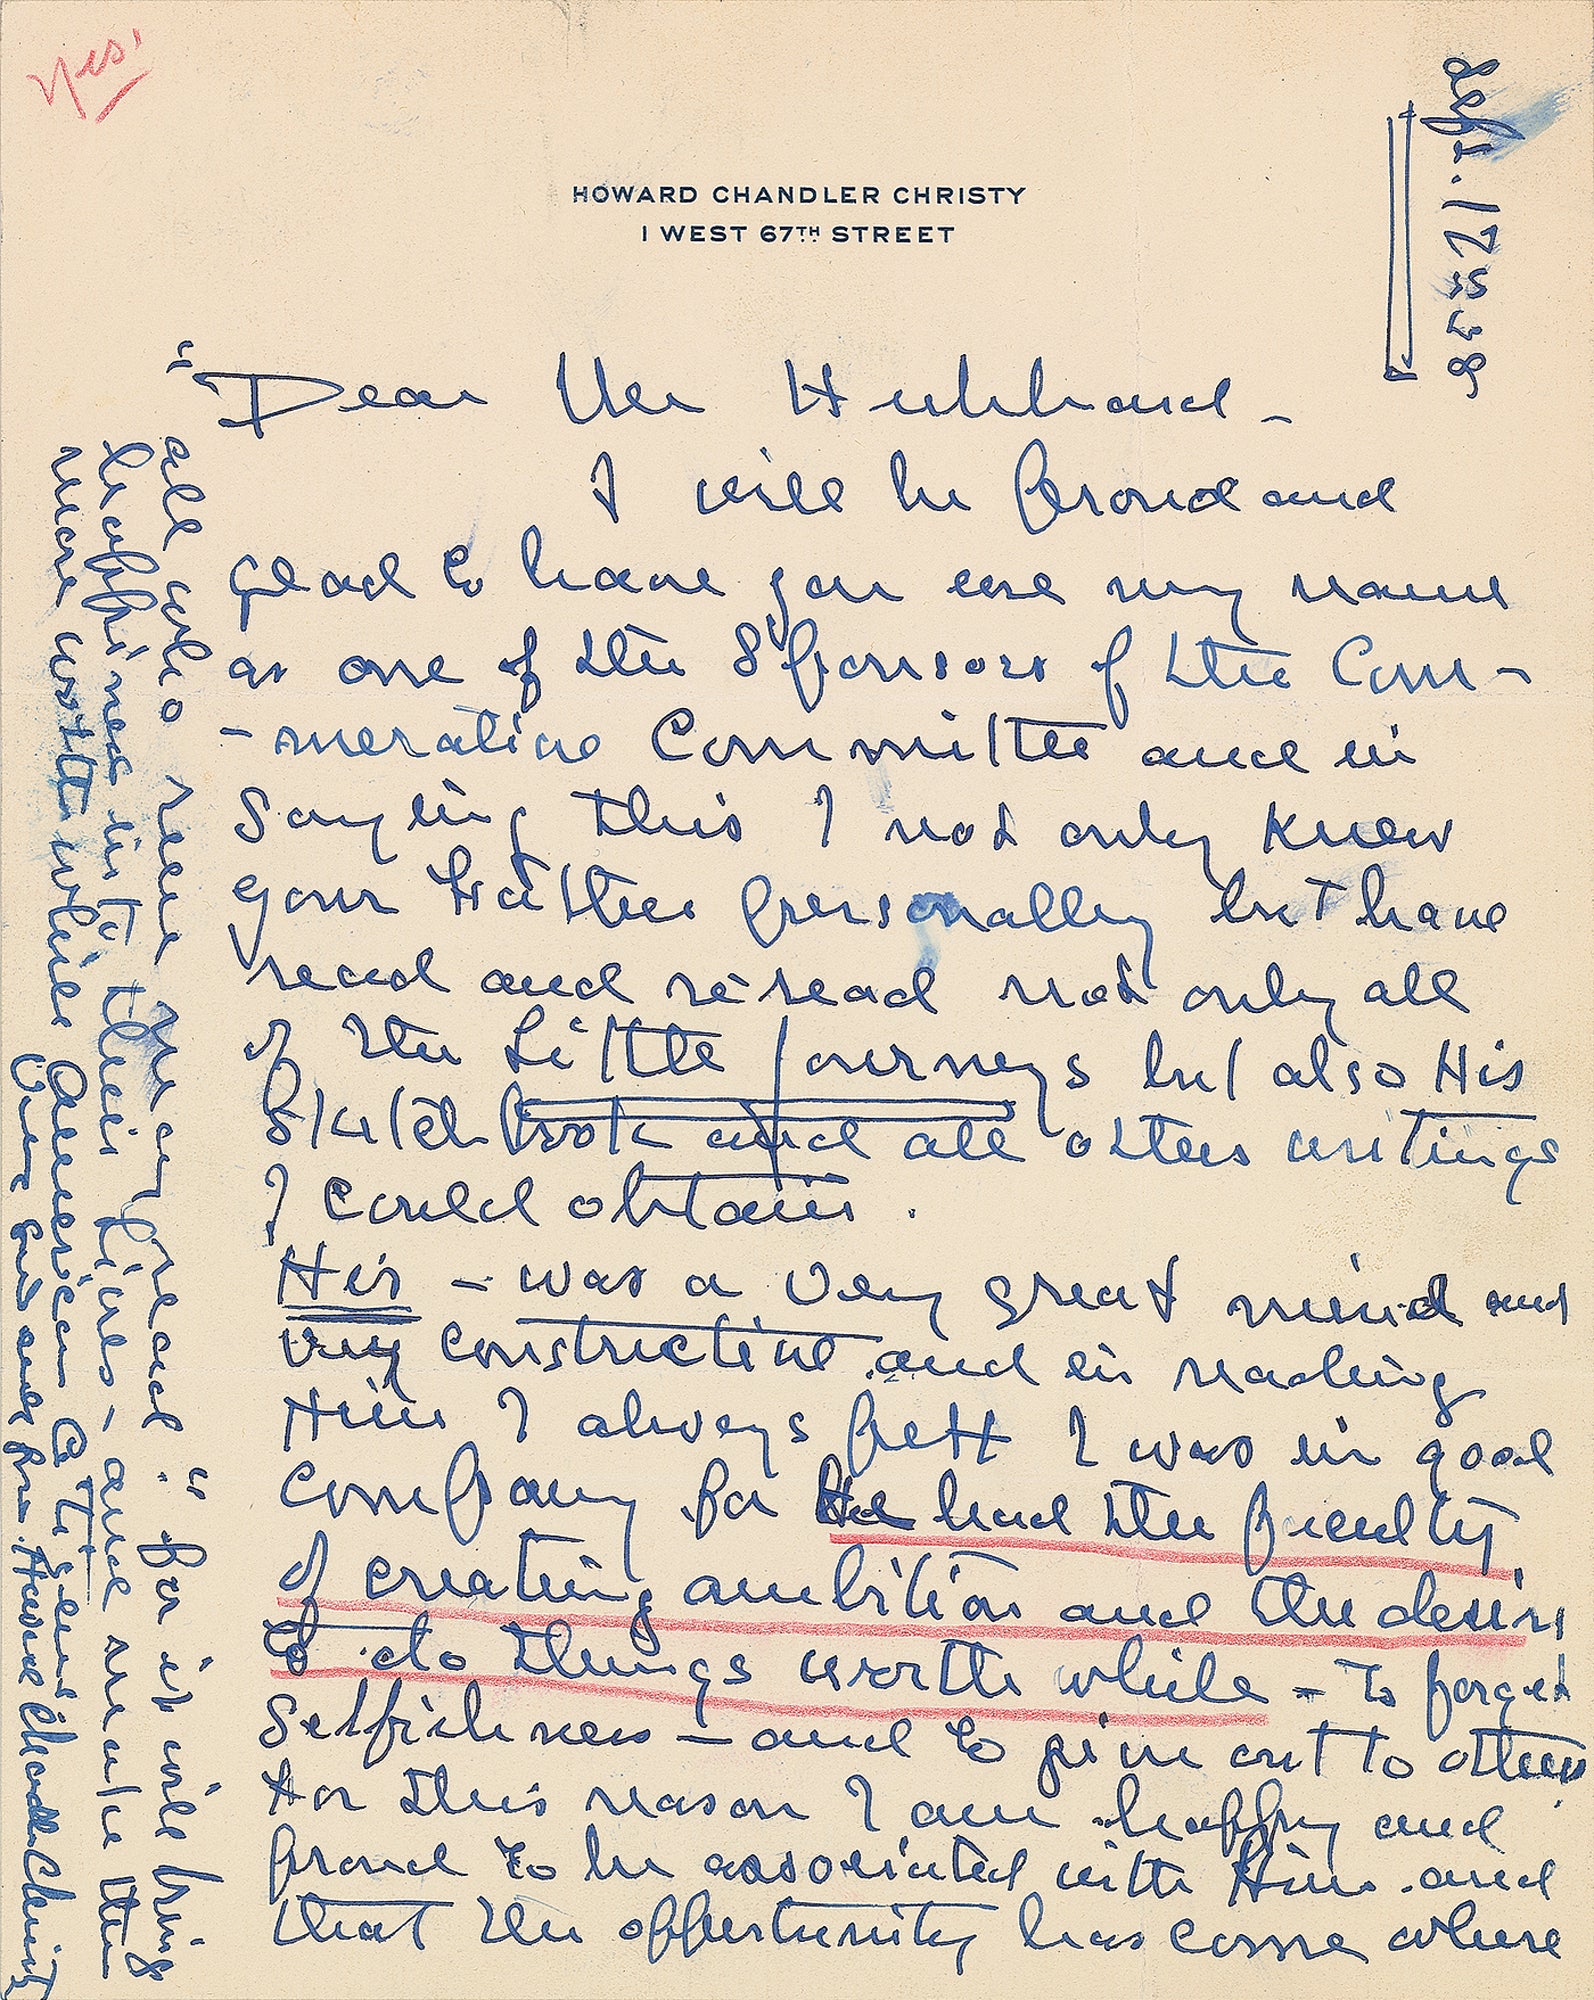 Yes!
Sept. 12th 1938
HOWARD CHANDLER CHRISTY
1 WEST 67TH STREET
"Dear Mr Hubbard –
I will be proud and
glad to have you use my name
as one of the Sponsors of the Com-
-morative Committee and in
saying this I not only knew
your Father personally but have
read and re-read not only all
of the Little Journeys but also His
Sketch book and all others writings
I could obtain.
His – was a very great mind and
very constructive and in reading
Him I always felt I was in good
company for He had the faculty
of creating ambition and the desire
to do things worth while – to forget
selfishness – and to give out to others
For this reason I am happy and
proud to be associated with Him and
that the opportunity has come where
all who run may read." For it will bring
happiness into their lives – and make them
more worth while American Citizens
Howard Chandler Christy